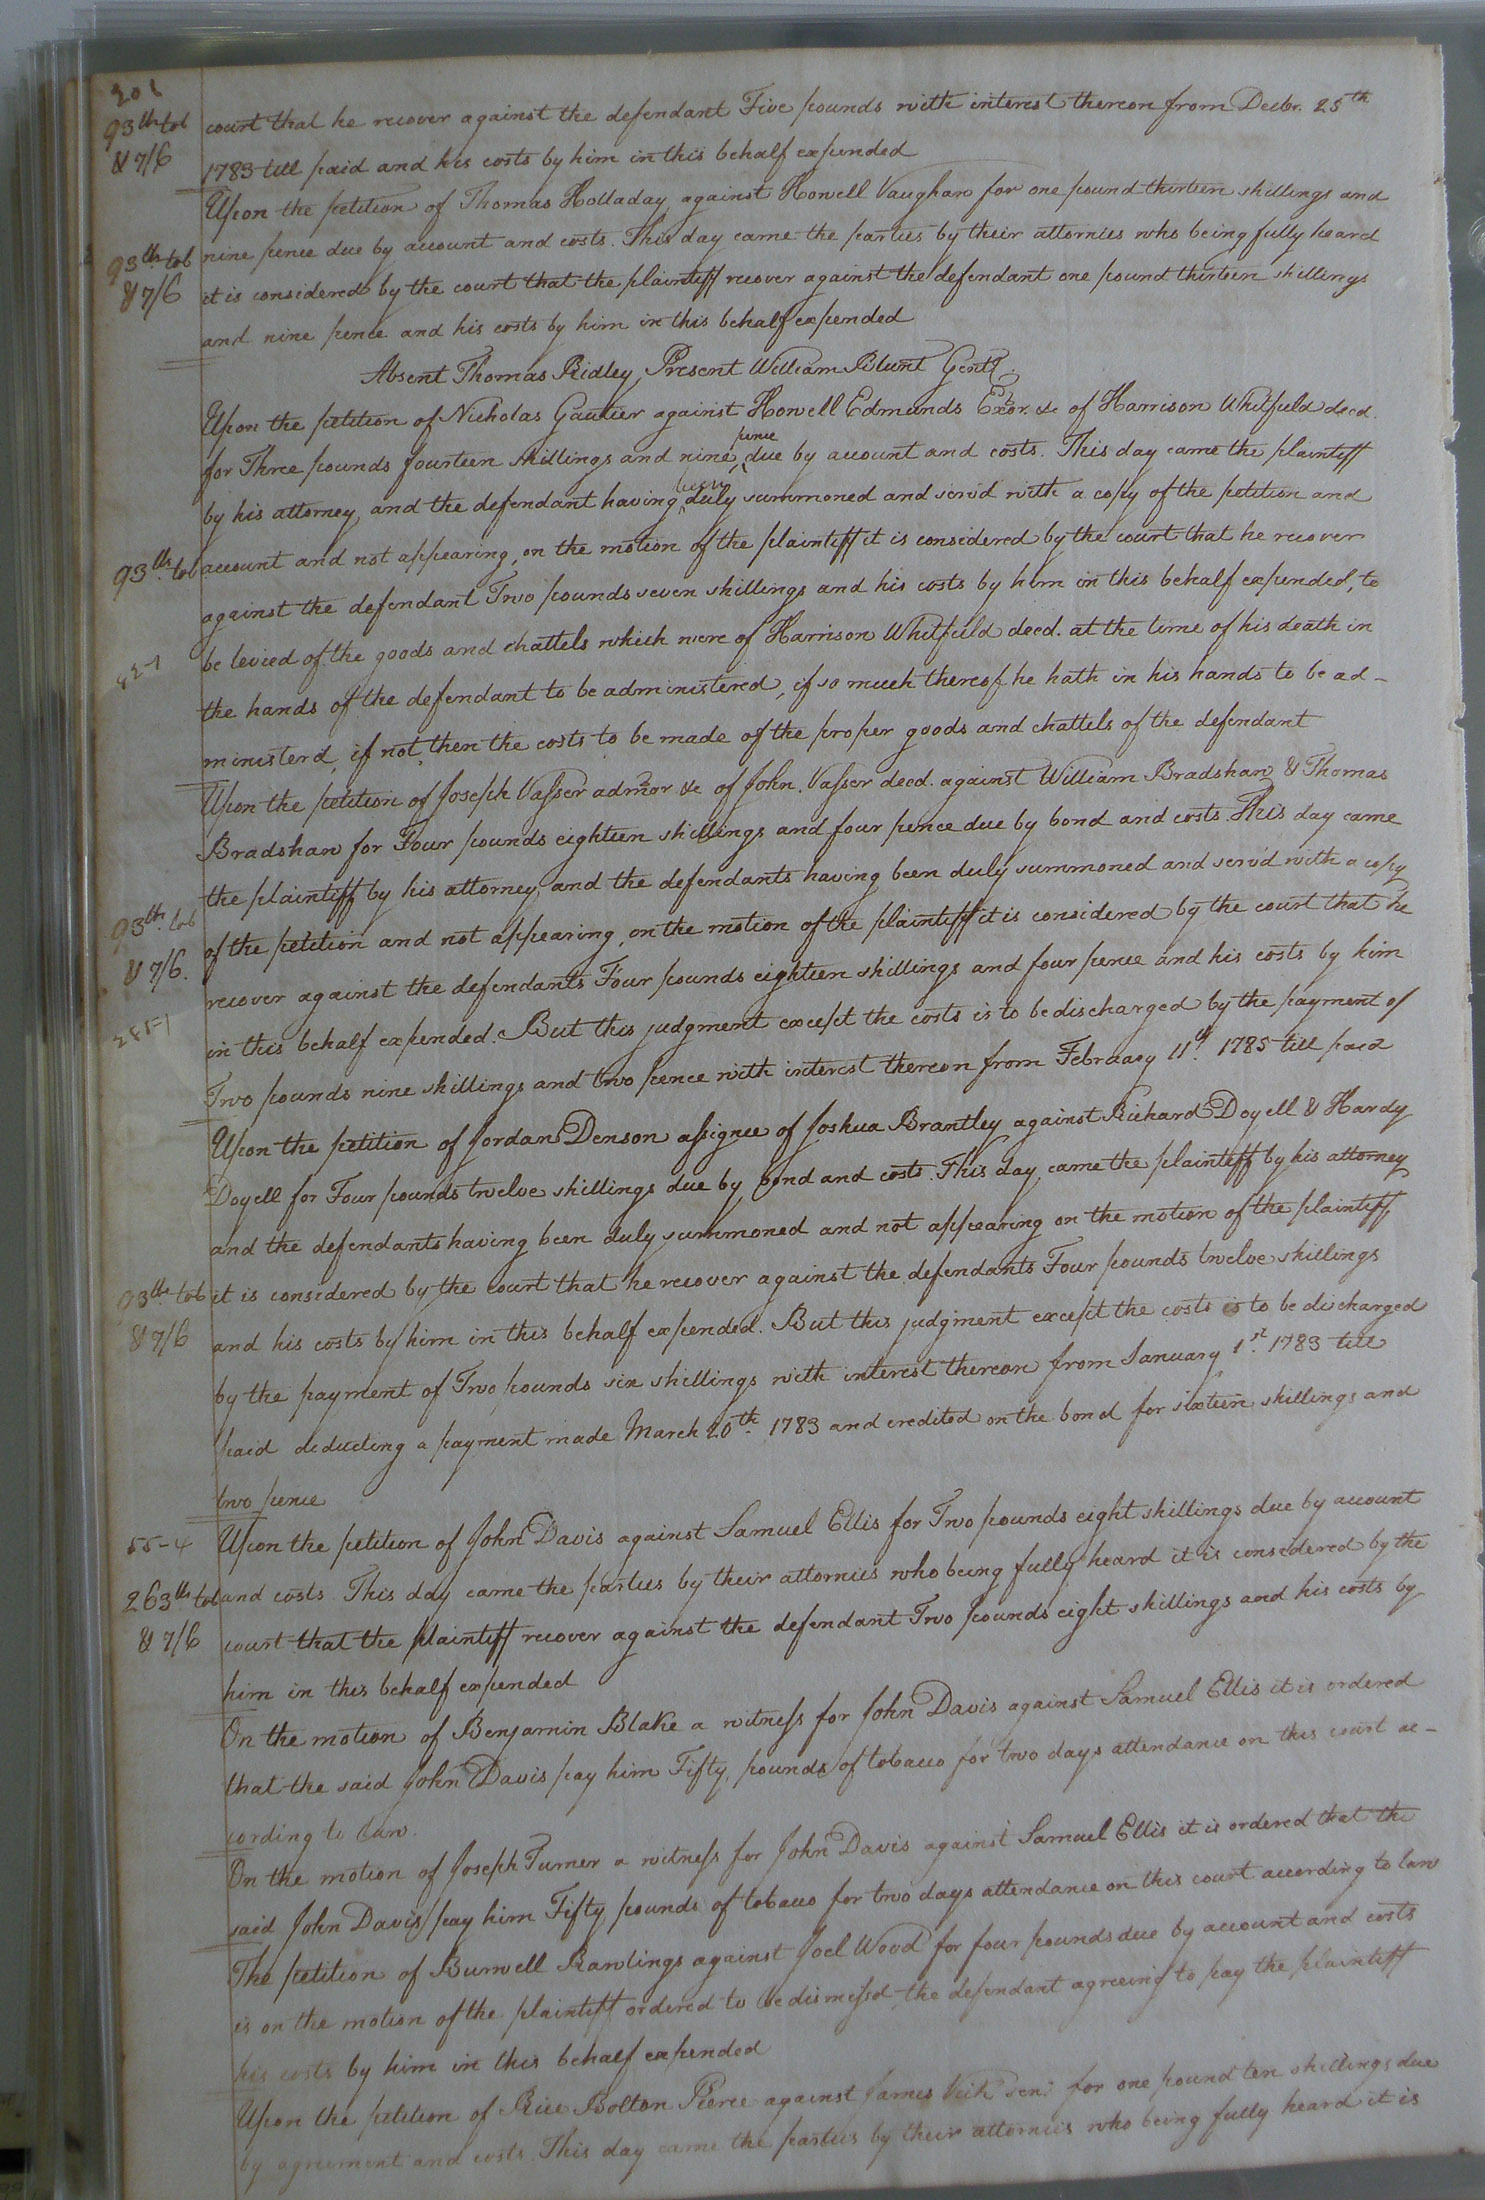 201
93lb tob
& 7/6
court that he recover against the defendant Five pounds with interest thereon from Decbr. 25th
1783 till paid and his costs by him in this behalf expended
Upon the petition of Thomas Holladay against Howell Vaughan for one pound thirteen shillings and
93lb tob
& 7/6
nine pence due by account and costs. This day came the parties by their attornies who being fully heard
it is considered by the court that the plaintiff recover against the defendant one pound thirteen shillings
and nine pence and his costs by him in this behalf expended
Absent Thomas Ridley, Present William Blunt Gentl.
Upon the petition of Nicholas Gautier against Howell Edmunds Exor. &c of Harrison Whitfield decd.
for Three pounds fourteen shillings and nine pence due by account and costs. This day came the plaintiff
by his attorney and the defendant having been duly summoned and serv'd with a copy of the petition and
93lb tob
account and not appearing, on the motion of the plaintiff it is considered by the court that he recover
against the defendant Two pounds seven shillings and his costs by him in this behalf expended, to
be levied of the goods and chattels which were of Harrison Whitfield decd. at the time of his death in
the hands of the defendant to be administered, if so much thereof he hath in his hands to be ad-
ministerd, if not, then the costs to be made of the proper goods and chattels of the defendant
Upon the petition of Joseph Vasser admor &c of John Vasser decd. against William Bradshaw & Thomas
Bradshaw for Four pounds eighteen shillings and four pence due by bond and costs. This day came
the plaintiff by his attorney and the defendants having been duly summoned and serv'd with a copy
93lb tob
& 7/6.
of the petition and not appearing, on the motion of the plaintiff it is considered by the court that he
recover against the defendants Four pounds eighteen shillings and four pence and his costs by him
in this behalf expended. But this judgment except the costs is to be discharged by the payment of
Two pounds nine shillings and two pence with interest thereon from February 11th. 1785 till paid
Upon the petition of Jordan Denson assignee of Joshua Brantley against Richard Doyell & Hardy
Doyell for Four pounds twelve shillings due by bond and costs. This day came the plaintiff by his attorney
and the defendants having been duly summoned and not appearing on the motion of the plaintiff
93lb tob
& 7/6
it is considered by the court that he recover against the defendants Four pounds twelve shillings
and his costs by him in this behalf expended. But this judgment except the costs is to be discharged
by the payment of Two pounds six shillings with interest thereon from January 1st. 1783 till
paid deducting a payment made March 20th. 1783 and credited on the bond for sixteen shillings and
two pence
55-4
Upon the petition of John Davis against Samuel Ellis for Two pounds eight shillings due by account
263lb tob
& 7/6
and costs This day came the parties by their attornies who being fully heard it is considered by the
court that the plaintiff recover against the defendant Two pounds eight shillings and his costs by
him in this behalf expended
On the motion of Benjamin Blake a witness for John Davis against Samuel Ellis it is ordered
that the said John Davis pay him Fifty pounds of tobacco for two days attendance on this court ac-
cording to law.
On the motion of Joseph Turner a witness for John Davis against Samuel Ellis it is ordered that the
said John Davis pay him Fifty pounds of tobacco for two days attendance on this court according to law
The petition of Burwell Rawlings against Joel Wood for four pounds due by account and costs
is on the motion of the plaintiff ordered to be dismissd, the defendant agreeing to pay the plaintiff
his costs by him in this behalf expended
Upon the petition of Rice Bolton Pierce against James Veik Senr. for one pound ten shillings due
by agreement and costs. This day came the parties by their attornies who being fully heard it is